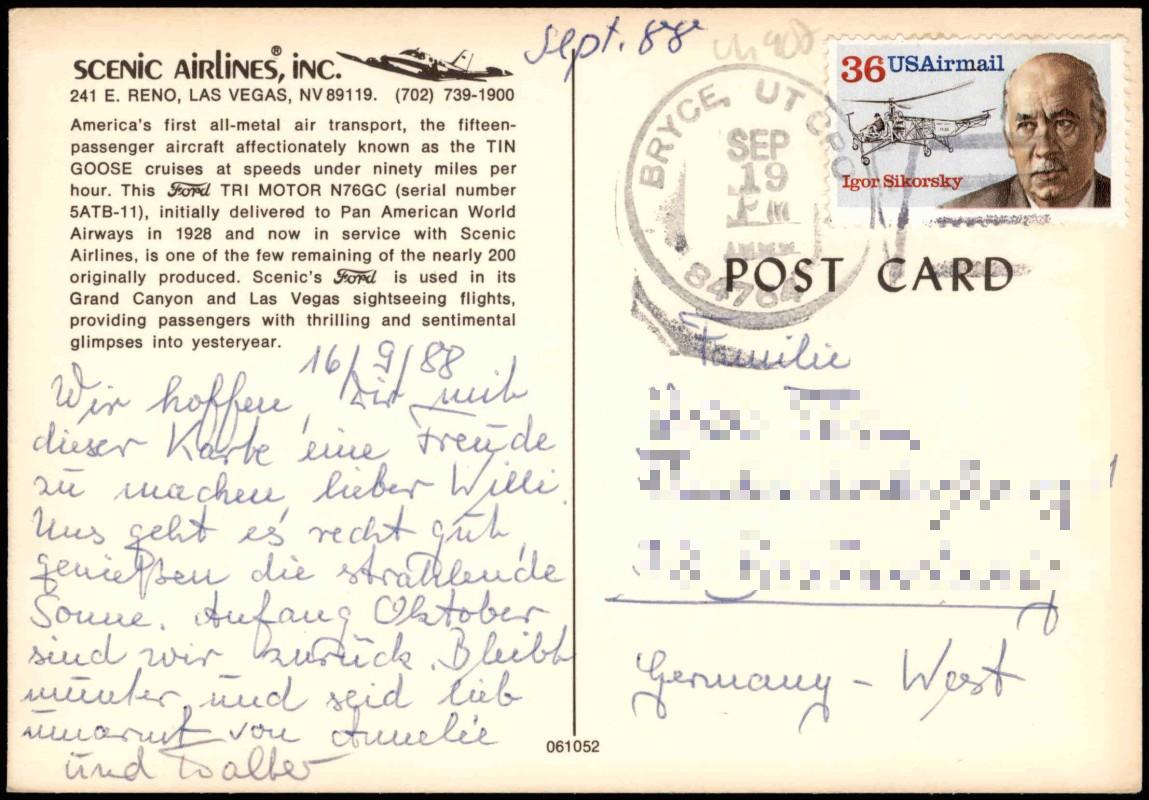 Sept. 88
SCENIC AIRLINES,® INC.
241 E. RENO, LAS VEGAS, NV 89119. (702) 739-1900
America's first all-metal air transport, the fifteen-
passenger aircraft affectionately known as the TIN
GOOSE cruises at speeds under ninety miles per
hour. This Ford TRI MOTOR N76GC (serial number
5ATB-11), initially delivered to Pan American World
Airways in 1928 and now in service with Scenic
Airlines, is one of the few remaining of the nearly 200
originally produced. Scenic's Ford is used in its
Grand Canyon and Las Vegas sightseeing flights,
providing passengers with thrilling and sentimental
glimpses into yesteryear.
16/9/88
Wir hoffen, Dir mit
dieser Karte eine Freude
zu machen, lieber Willi.
Uns geht es recht gut,
genießen die strahlende
Sonne. Anfang Oktober
sind wir zurück. Bleibt
munter und seid lieb
umarmt von Annelie
und Walter
061052
BRYCE, UT CPO
SEP
19
PM
84764
36 USAirmail
Igor Sikorsky
POST CARD
Familie
Germany - West